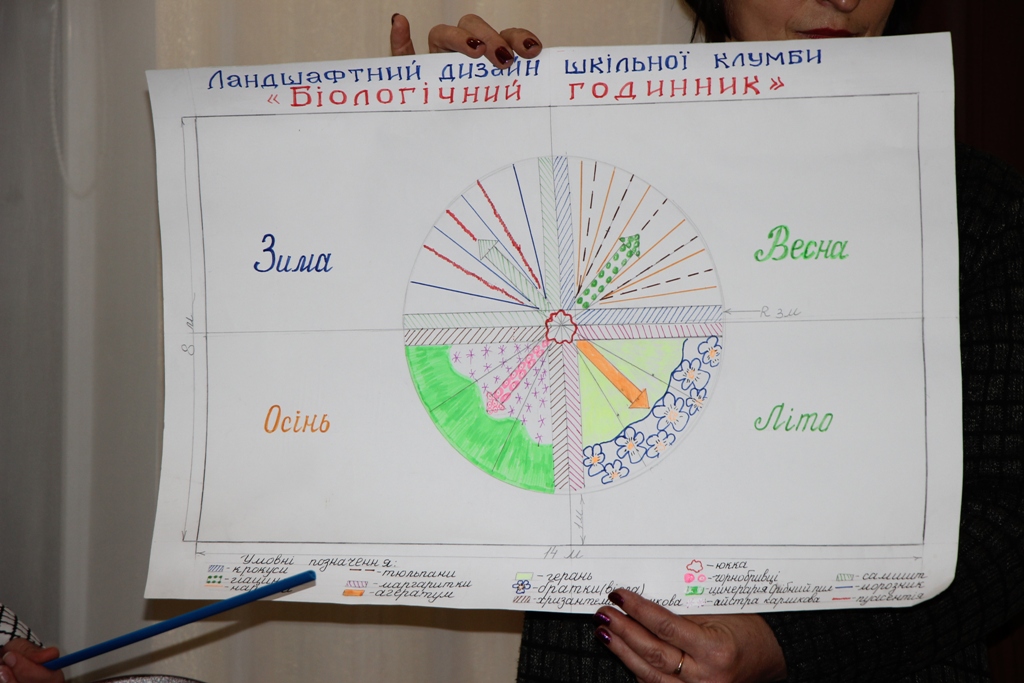 Ландшафтний дизайн шкільної клумби
«Біологічний годинник»
Зима
Весна
R 3м
8 м
Осінь
Літо
1м
14 м
Умовні позначення:
- крокуси
- тюльпани
- маргаритки
- агератум
- герань
- братки (віола)
- юкка
- чорнобривці
- цинерарія (срібний пил)
- айстра карликова
- самшит
- морозник
- пуансентія